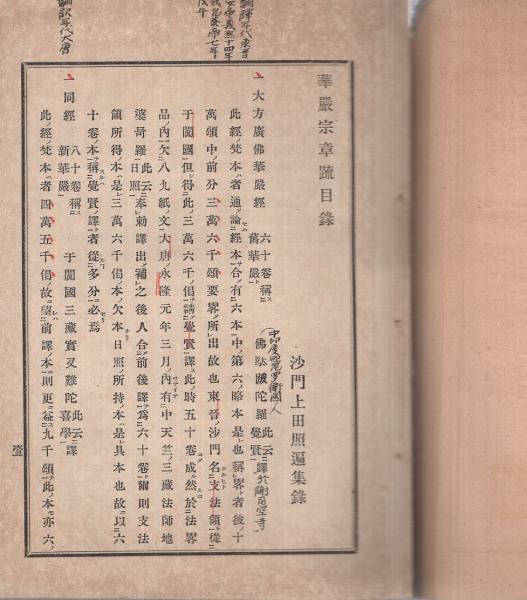 華嚴宗章疏目錄
沙門上田照遍集錄
一大方廣佛華嚴經 六十卷稱舊華嚴 佛馱跋陀羅 此云覺賢 譯
此經梵本者通論經本合有六本中第六略本是也稱略者彼十
萬頌中前分三萬六千頌要略所出故也東晉沙門名支法領從
于闐國但得此三萬六千偈請覺賢譯此時五十卷成然於法界
品內欠八九紙文大唐永隆元年三月內有中天竺三藏法師地
婆訶羅 此云日照 奉勅譯出補之後人合前後譯爲六十卷爾則支法
領所得本是三萬六千偈本欠本日照所持本是具本也故以六
十卷本稱覺賢譯者從多分必焉
一同經 八十卷稱新華嚴 于闐國三藏實叉難陀 此云喜學 譯
此經梵本者四萬五千偈故望前譯本則更益九千頌此本亦六
壹